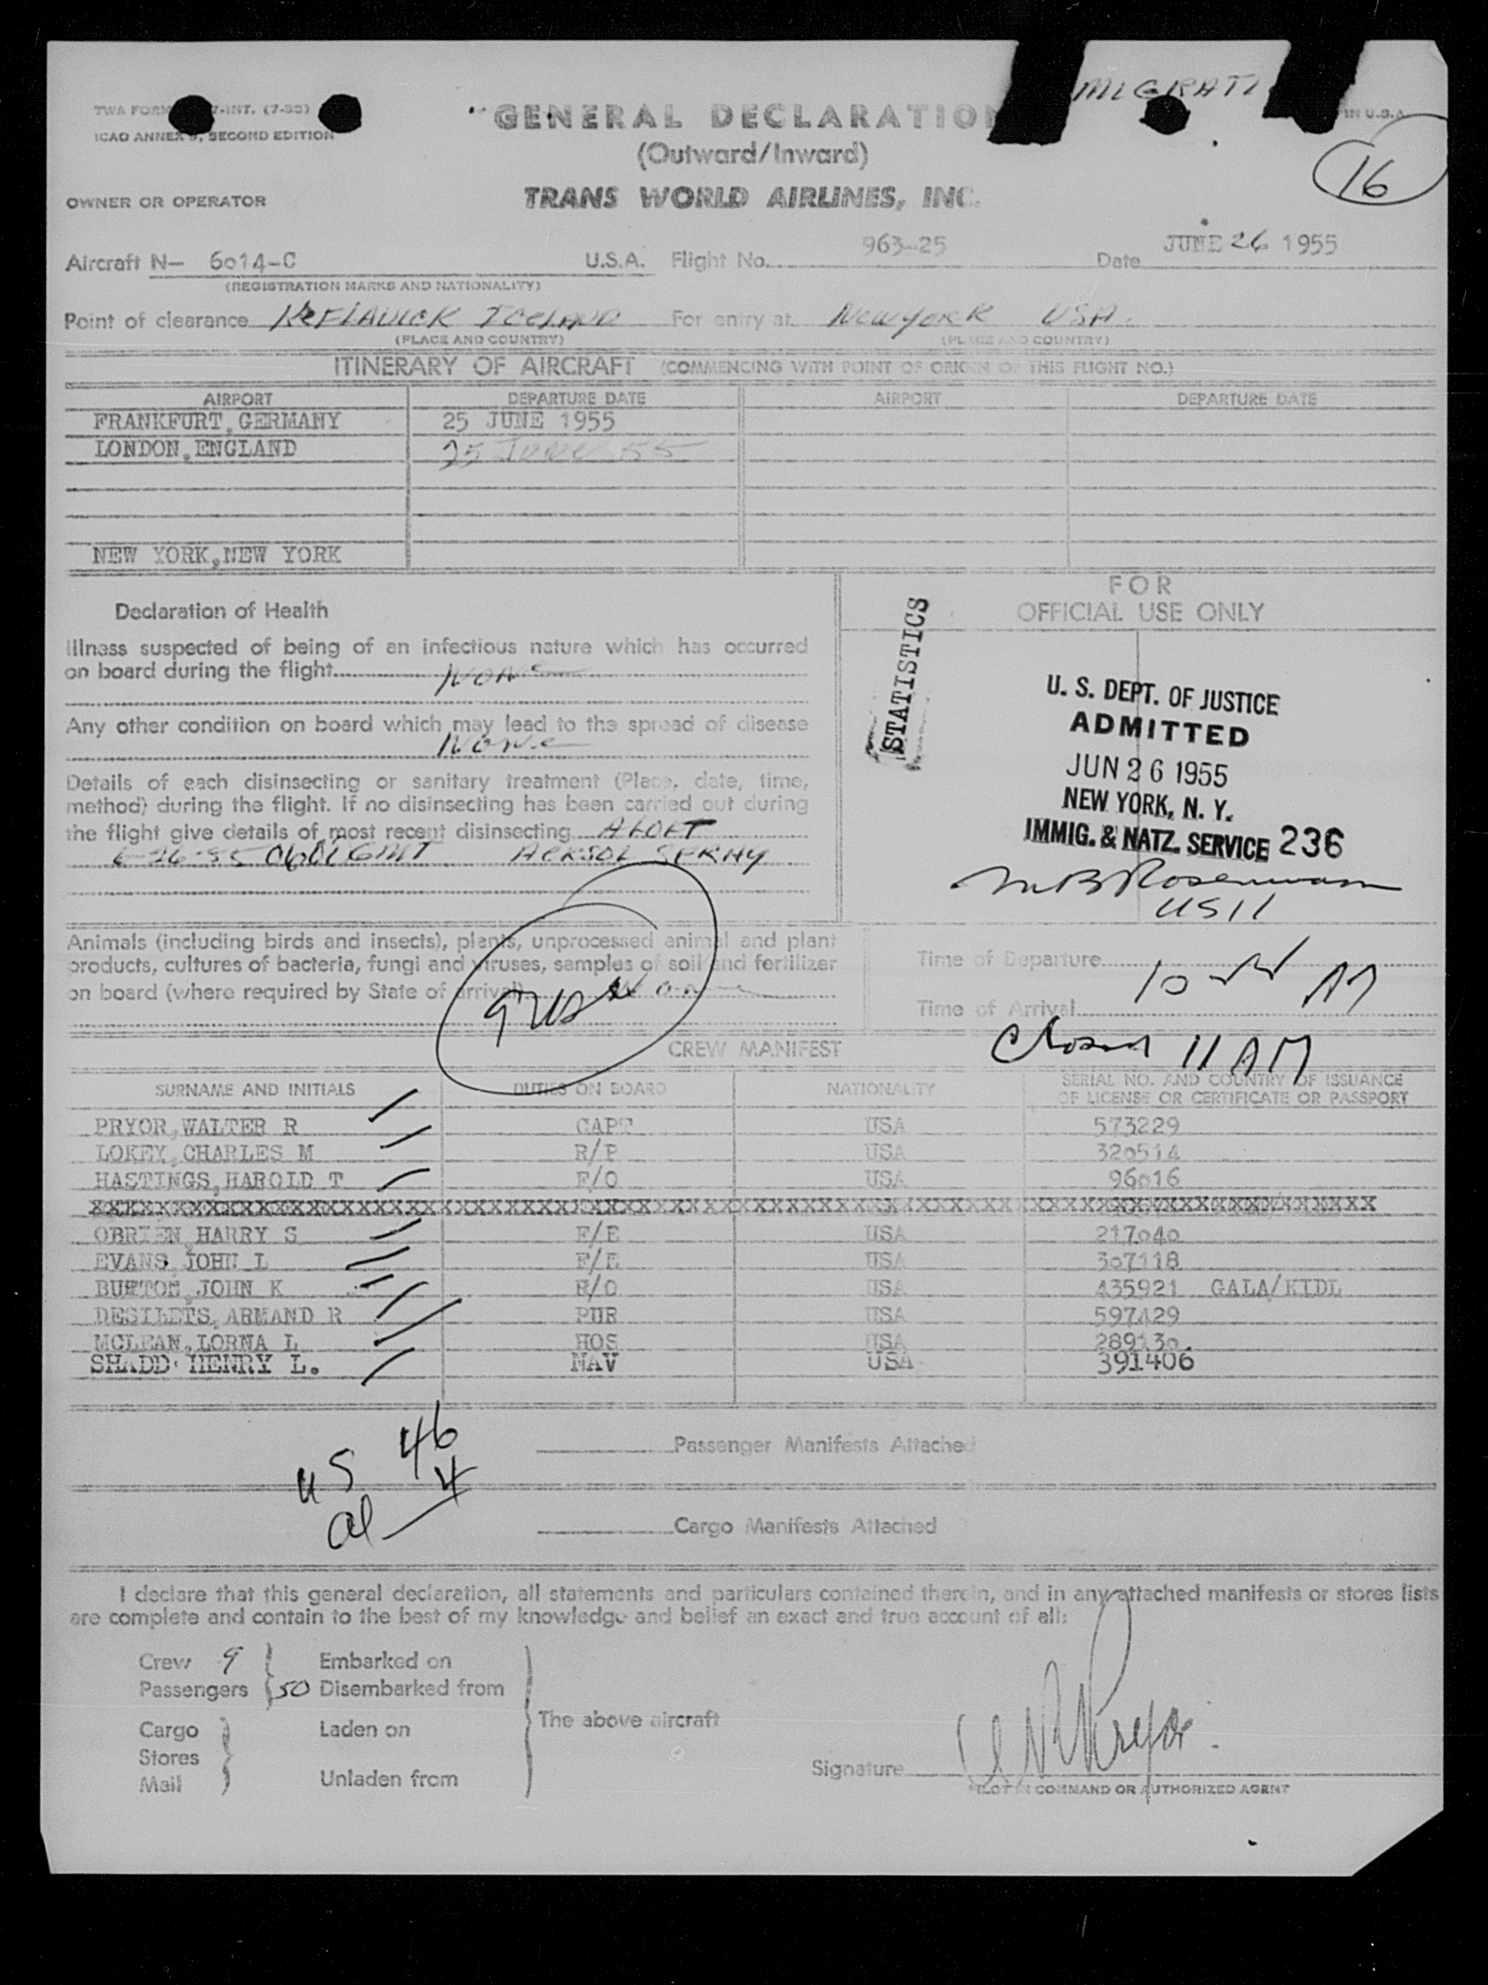 MIGRATI
TWA FORM 7-INT. (7-53)
ICAO ANNEX 9, SECOND EDITION
IN U.S.A.
GENERAL DECLARATION
(Outward/Inward)
16
OWNER OR OPERATOR TRANS WORLD AIRLINES, INC.
Aircraft N- 6014-C U.S.A. Flight No. 963-25 Date JUNE 26 1955
(REGISTRATION MARKS AND NATIONALITY)
Point of clearance KeFLAVICK ICELAND For entry at New YORK USA.
(PLACE AND COUNTRY) (PLACE AND COUNTRY)
ITINERARY OF AIRCRAFT (COMMENCING WITH POINT OF ORIGIN OF THIS FLIGHT NO.)
AIRPORT DEPARTURE DATE AIRPORT DEPARTURE DATE
FRANKFURT, GERMANY 25 JUNE 1955
LONDON, ENGLAND 25 JUNE 55
NEW YORK, NEW YORK
Declaration of Health
Illness suspected of being of an infectious nature which has occurred
on board during the flight NONE
Any other condition on board which may lead to the spread of disease
None
Details of each disinsecting or sanitary treatment (Place, date, time,
method) during the flight. If no disinsecting has been carried out during
the flight give details of most recent disinsecting ALOFT
6-26-55 0601GMT AERSOL SPRAY
FOR
OFFICIAL USE ONLY
STATISTICS
U. S. DEPT. OF JUSTICE
ADMITTED
JUN 26 1955
NEW YORK, N. Y.
IMMIG. & NATZ. SERVICE 236
Animals (including birds and insects), plants, unprocessed animal and plant
products, cultures of bacteria, fungi and viruses, samples of soil and fertilizer
on board (where required by State of arrival) None
Time of Departure
Time of Arrival
AM
Closed 11 AM
CREW MANIFEST
SURNAME AND INITIALS DUTIES ON BOARD NATIONALITY SERIAL NO. AND COUNTRY OF ISSUANCE
OF LICENSE OR CERTIFICATE OR PASSPORT
PRYOR, WALTER R CAPT USA 573229
LOKEY, CHARLES M R/P USA 320514
HASTINGS, HAROLD T F/O USA 96016
OBRIEN, HARRY S F/E USA 217040
EVANS, JOHN L F/E USA 307118
BURTON, JOHN K R/O USA 435921 GALA/KIDL
DESILETS, ARMAND R PUR USA 597429
MCLEAN, LORNA L HOS USA 289130
SHADD, HENRY L. NAV USA 391406
US 46
al 4
Passenger Manifests Attached
Cargo Manifests Attached
I declare that this general declaration, all statements and particulars contained therein, and in any attached manifests or stores lists
are complete and contain to the best of my knowledge and belief an exact and true account of all:
Crew 9 Embarked on
Passengers 50 Disembarked from
Cargo Laden on
Stores
Mail Unladen from
The above aircraft
Signature W R Pryor
PILOT IN COMMAND OR AUTHORIZED AGENT